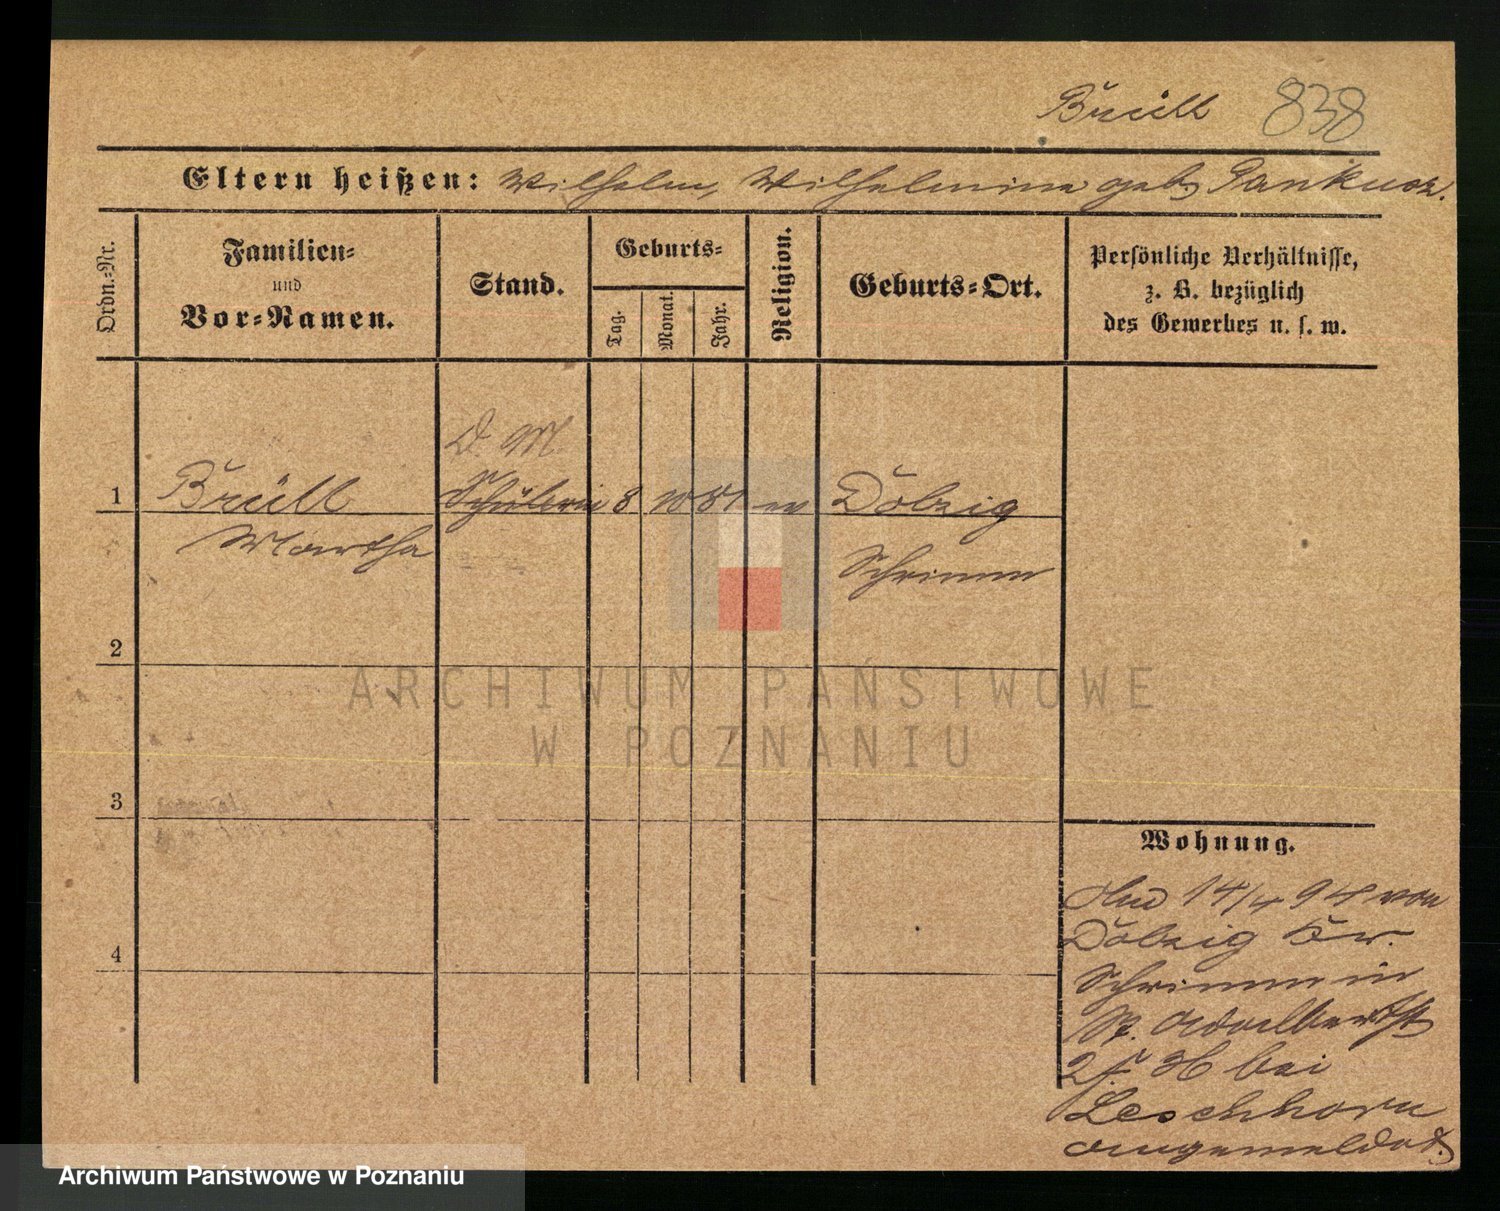 Brüll 838
Eltern heißen: Wilhelm, Wilhelmine geb
Ordn.=Nr.
Familien=
und
Vor=Namen.
Stand.
Geburts=
Tag.
Monat.
Jahr.
Religion.
Geburts=Ort.
Persönliche Verhältnisse,
z. B. bezüglich
des Gewerbes u. s. w.
D. M.
1 Brüll Schülerin 8 10 81 ev Dolzig
Martha
Schrimm
2
3
4
Wohnung.
14/4 94 von
Dolzig Kr.
Schrimm in
St. Adalbertst
bei
Leschhorn
angemeldet.
ARCHIWUM PAŃSTWOWE
W POZNANIU
Archiwum Państwowe w Poznaniu